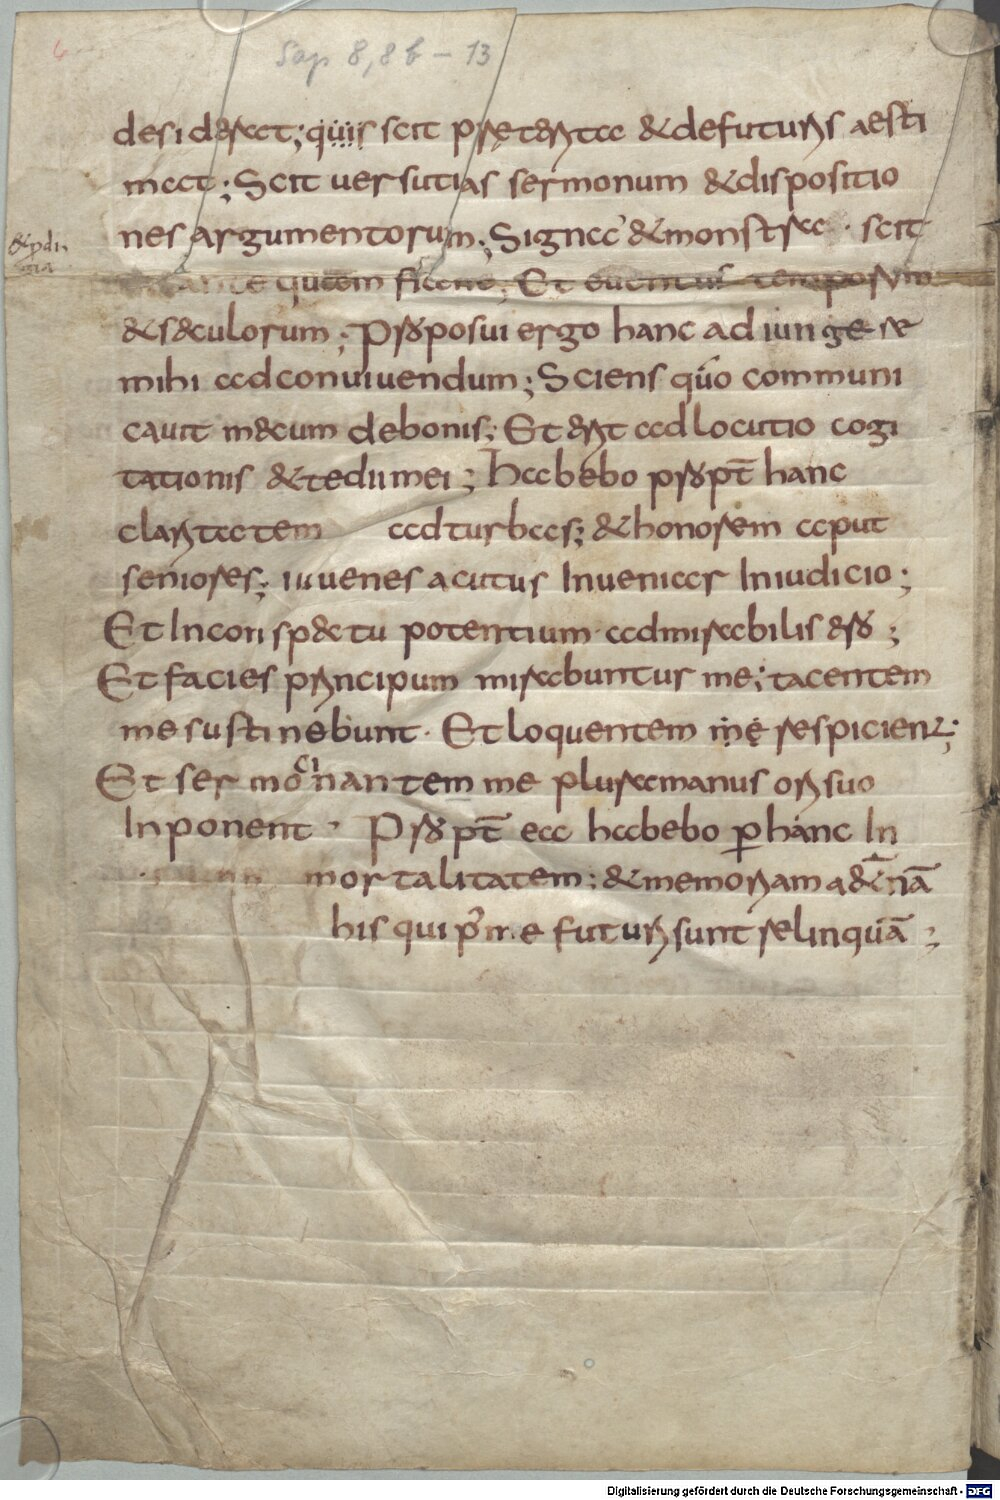 6
Sap 8,8b – 13
desiderat; quis scit pręterita &defuturis aesti
mat; Scit uersutias sermonum &dispositio
nes argumentorum; Signa &monstra · scit
&pdi
gia
antequam fiant; Et euentus temporum
&s&culorum; Proposui ergo hanc adiungere
mihi adconuiuendum; Sciens qūo communi
cauit m&cum debonis; Et erit adlocutio cogi
tationis &tedii mei; habebo propt̄ hanc
claritatem adturbas; &honorem aput
seniores; iuuenes acutus Inueniar Iniudicio;
Et Inconsp&ctu potentium admirabilis ero;
Et facies principum mirabuntur me; tacentem
me sustinebunt · Et loquentem me respicient;
Et sermocinantem me plura manus ori suo
Inponent · Propt̄ ea habebo p̱ hanc In
mortalitatem; &memoriam a&nā
his qui p̄ me futuri sunt relinquā;
Digitalisierung gefördert durch die Deutsche Forschungsgemeinschaft · DFG